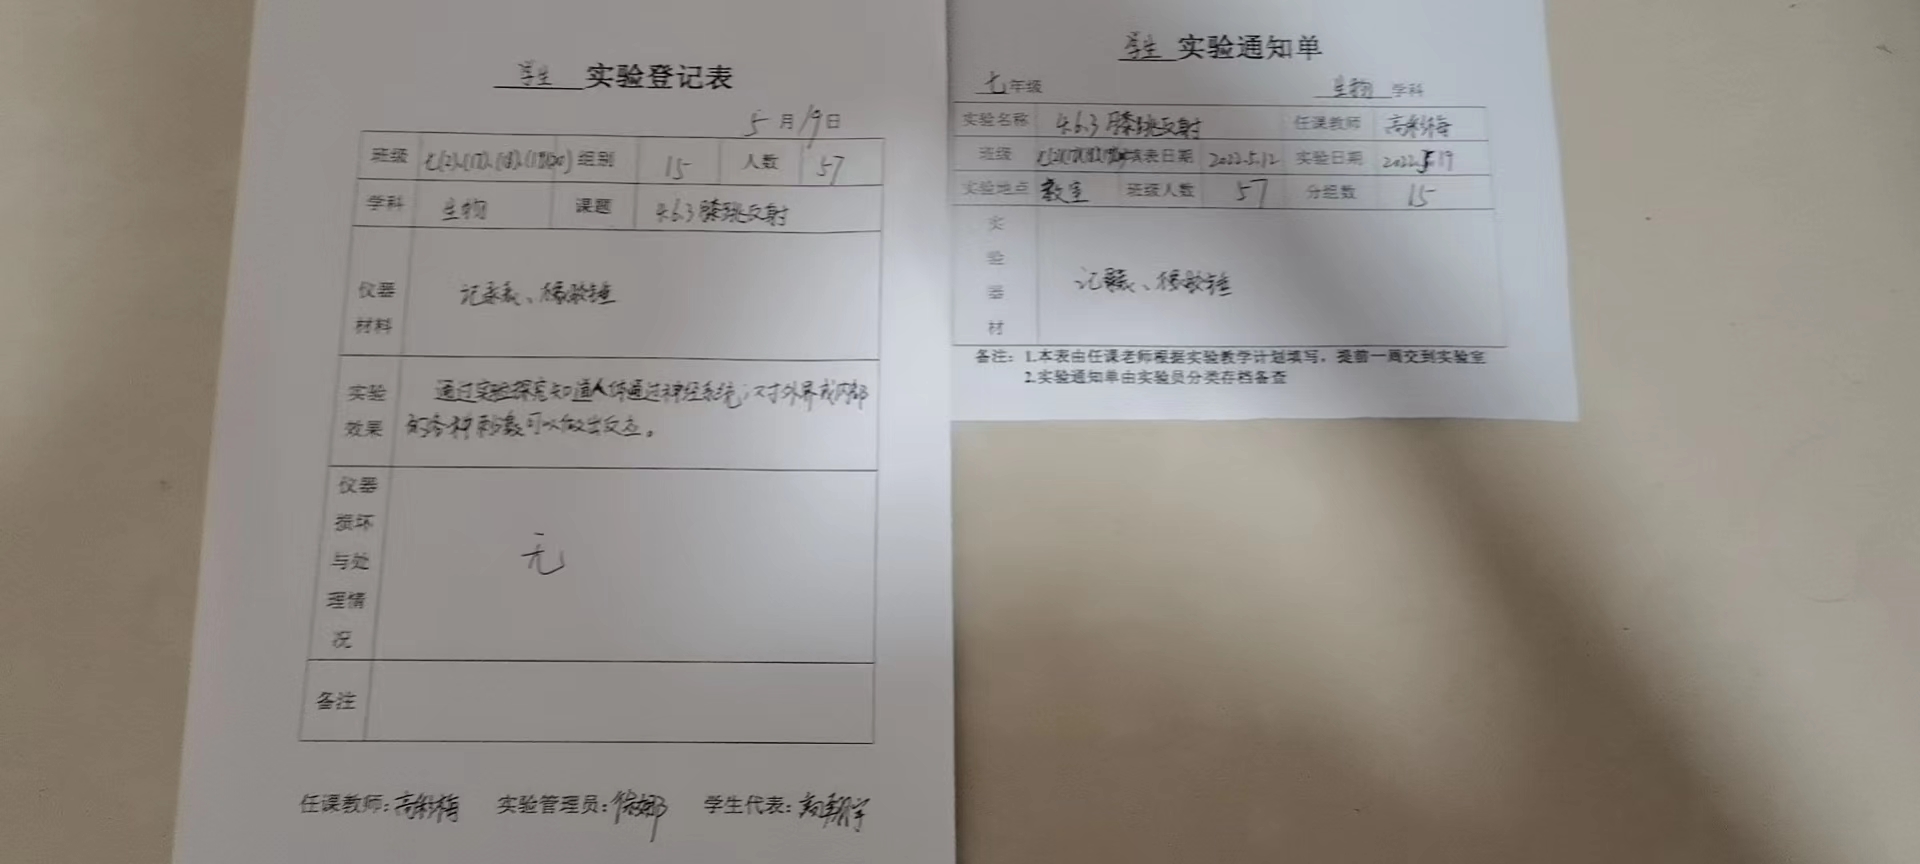 学生 实验登记表
5月19日
班级 七(2)、(17)、(18)、(19)(20) 组别 15 人数 57
学科 生物 课题 4.6.3膝跳反射
仪器材料 记录表、橡胶锤
实验效果 通过实验探究知道人体通过神经系统,对外界或内部
的各种刺激可以做出反应。
仪器损坏与处理情况 无
备注
任课教师: 实验管理员: 学生代表:
学生 实验通知单
七年级 生物 学科
实验名称 4.6.3膝跳反射 任课教师
班级 填表日期 2022.5.12 实验日期 2022.5.19
实验地点 教室 班级人数 57 分组数 15
实验器材 记录表、橡胶锤
备注:1.本表由任课老师根据实验教学计划填写,提前一周交到实验室
2.实验通知单由实验员分类存档备查